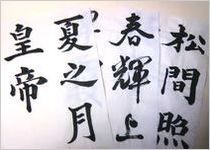 松間照
春輝上
夏之月
皇帝